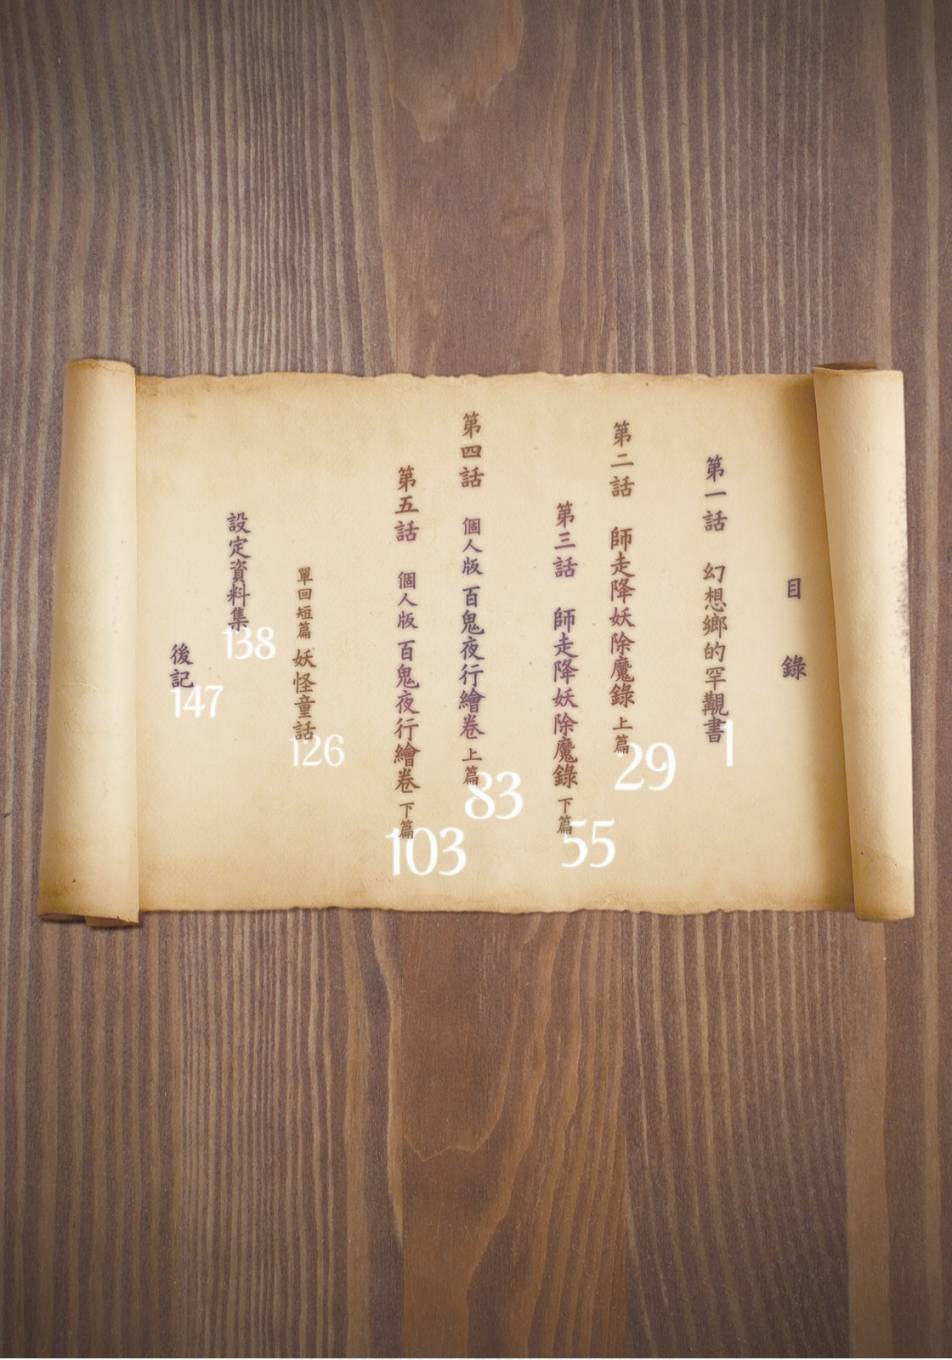 目錄
第一話 幻想鄉的罕觀書 1
第二話 師走降妖除魔錄 上篇 29
第三話 師走降妖除魔錄 下篇 55
第四話 個人版 百鬼夜行繪卷 上篇 83
第五話 個人版 百鬼夜行繪卷 下篇 103
單回短篇 妖怪童話 126
設定資料集 138
後記 147